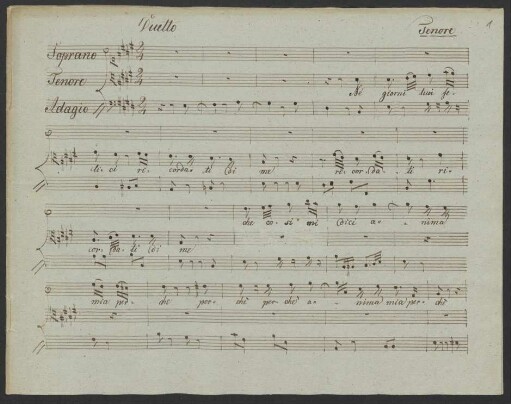 Duetto Tenore 1
Soprano
Tenore Ne giorni tuoi fe-
Adagio
li- ci ri- corda- ti di me ri- corda- ti ri-
che co- si mi dici a- nima
cor- da- ti di me
mia per- che per- chè per che a- nima mia per- chè